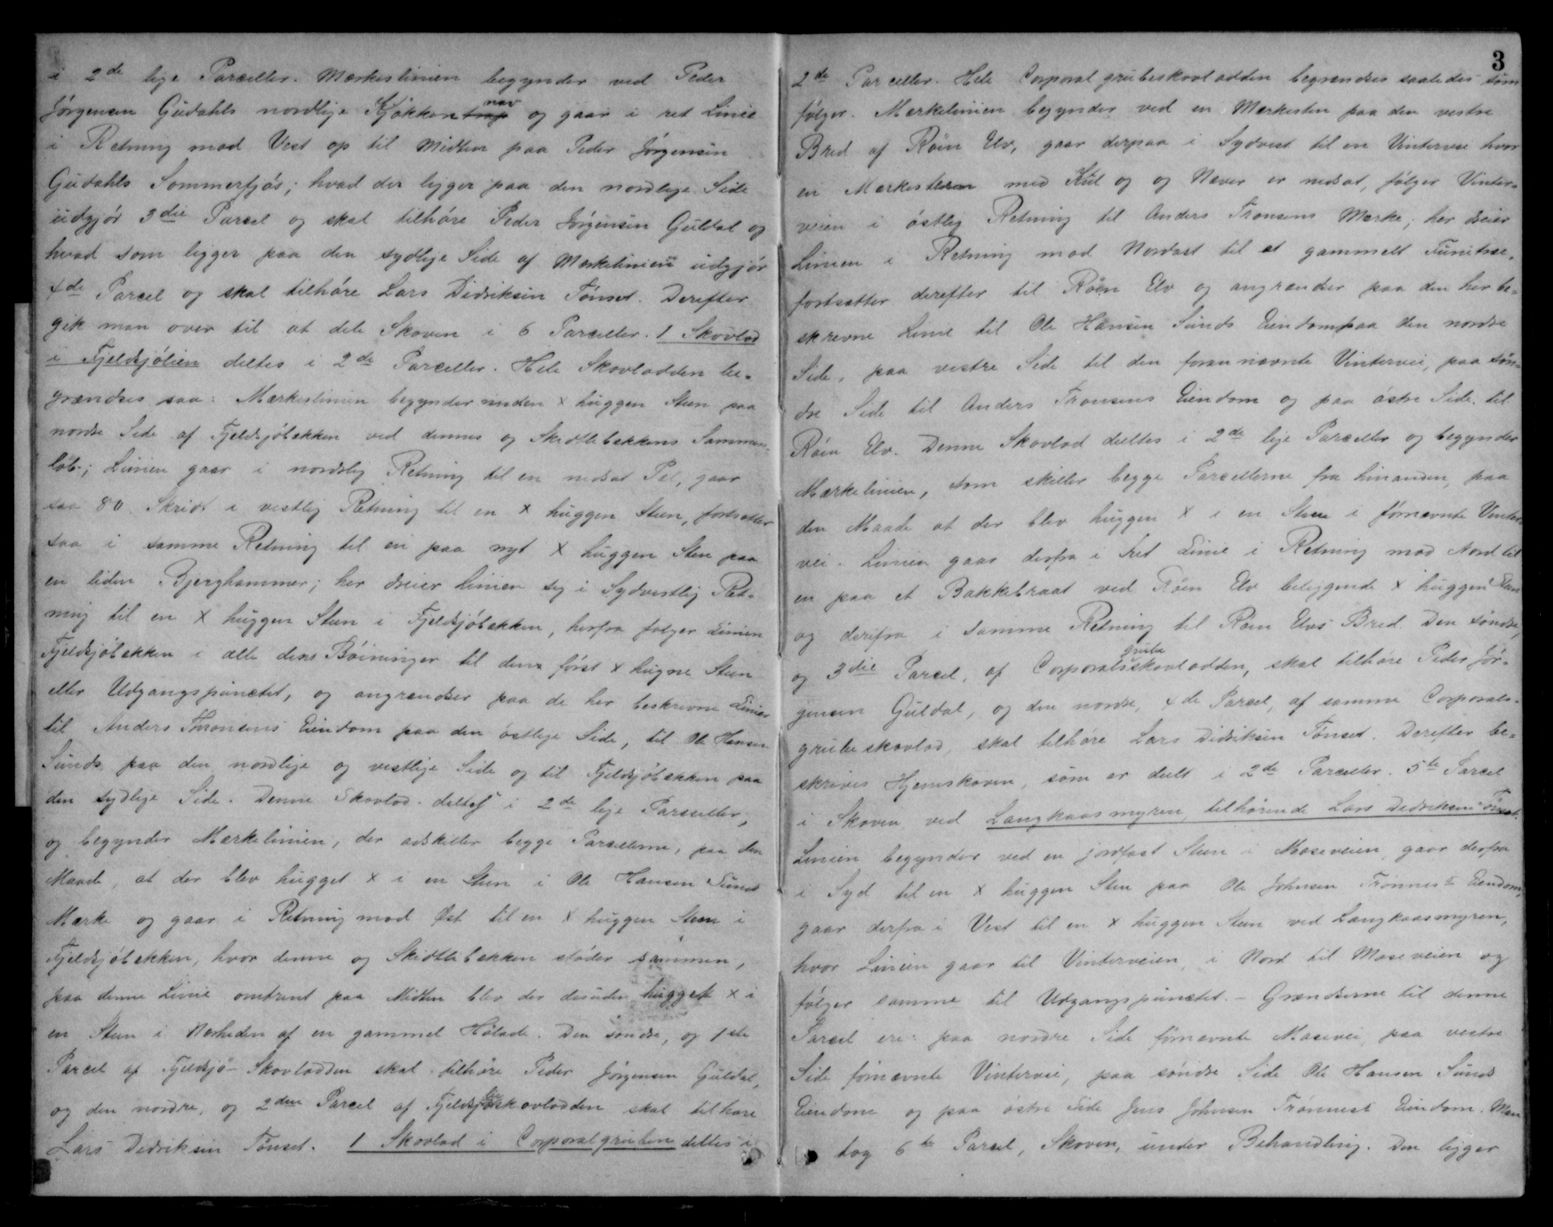 i 2de lige Parceller. Mærkeslinien begynder ved Peder
Jørgensen Guldahls nordlige Kjøkken nav og gaar i ret Linie
i Retning mod Vest op til Midten paa Peder Jørgensen
Guldahls Sommerfjøs; hvad der ligger paa den nordlige Side
udgjør 3die Parcel og skal tilhøre Peder Jørgensen Guldal og
hvad som ligger paa den sydlige Side af Merkelinien udgjør
4de Parcel og skal tilhøre Lars Didriksen Tønset. Derefter
gik man over til at dele Skoven i 6 Parceller. 1 Skovlod
i Fjeldsjølien deltes i 2de Parceller. Hele Skovlodden be-
grændses saa: Mærkeslinien begynder under x huggen Sten paa
nordre Side af Fjeldsjøbækken ved dennes og Skidtbækkens Sammen-
løb; Linien gaar i nordlig Retning til en nedsat Pel, gaar
saa 80 Skridt i vestlig Retning til en x huggen Sten, fortsætter
saa i samme Retning til en paa nyt x huggen Sten paa
en liden Bjerghammer; her dreier Linien sig i Sydvestlig Ret-
ning til en x huggen Sten i Fjeldsjøbækken, herfra følger Linien
Fjeldsjøbækken i alle dens Bøininger til den først x hugne Sten
eller Udgangspunctet, og angrændser paa de her beskrevne Linier
til Anders Thronsens Eiendom paa den østlige Side, til Ole Hansen
Sunds paa den nordlige og vestlige Side og til Fjeldsjøbækken paa
den sydlige Side. Denne Skovlod deltes i 2de lige Parceller,
og begynder Mærkelinien, der adskiller begge Parcellerne, paa den
Maade, at der blev hugget x i en Sten i Ole Hansen Sunds
Mærke og gaar i Retning mod Øst til en x huggen Sten i
Fjeldsjøbækken, hvor denne og Skidtbækken støder sammen,
paa denne Linie omtrent paa Midten blev der desuden hugget x i
en Sten i Nærheden af en gammel Hølade. Den søndre, og 1ste
Parcel af Fjeldsjø-Skovlodden skal tilhøre Peder Jørgensen Guldal,
og den nordre, og 2den Parcel af Fjeldsjøskovlodden skal tilhøre
Lars Didriksen Tønset. 1 Skovlod i Corporalgruben deltes i
3
2de Parceller. Hele Corporalgrubeskovlodden begrændses saaledes som
følger. Merkelinien begynder ved en Merkesten paa den vestre
Bred af Røien Elv, gaar derpaa i Sydvest til en Vintervei hvor
en Merkesten med Kul og og Næver er nedsat, følger Vinter-
veien i østlig Retning til Anders Tronsens Merke, her dreier
Linien i Retning mod Nordost til et gammelt Furutræ,
fortsætter derefter til Røien Elv og angrændser paa den her be-
skrevne Linie til Ole Hansen Sunds Eiendom paa den nordre
Side, paa vestre Side til den foran nævnte Vintervei, paa søn-
dre Side til Anders Tronsens Eiendom og paa østre Side til
Røien Elv. Denne Skovlod deltes i 2de lige Parceller og begynder
Merkelinien, som skiller begge Parcellerne fra hinanden, paa
den Maade at der blev huggen x i en Sten i førnævnte Vinter-
vei. Linien gaar derfra i ret Linie i Retning mod Nord til
en paa et Bakkebraat ved Røien Elv beliggende x huggen Sten
og derifra i samme Retning til Røien Elvs Bred. Den søndre,
og 3die Parcel, af Corporalsgrubeskovlodden, skal tilhøre Peder Jør-
gensen Guldal, og den nordre, 4de Parcel, af samme Corporals-
grubeskovlod, skal tilhøre Lars Didriksen Tønset. Derefter be-
skrives Hjemskoven, som er delt i 2de Parceller. 5te Parcel
i Skoven ved Langkaasmyren, tilhørende Lars Didriksen Tønset.
Linien begynder ved en jordfast Sten i Moseveien, gaar derfra
i Syd til en x huggen Sten paa Ole Johnsen Trønnes's Eiendom,
gaar derfra i Vest til en x huggen Sten ved Langkaasmyren,
hvor Linien gaar til Vinterveien, i Nord til Moseveien og
følger samme til Udgangspunctet. - Grændserne til denne
Parcel er: paa nordre Side førnævnte Mosevei, paa vestre
Side førnævnte Vintervei, paa søndre Side Ole Hansen Sunds
Eiendom og paa østre Side Jens Johnsen Trønnes's Eiendom. Man
tog 6te Parcel, Skoven, under Behandling. Den ligger